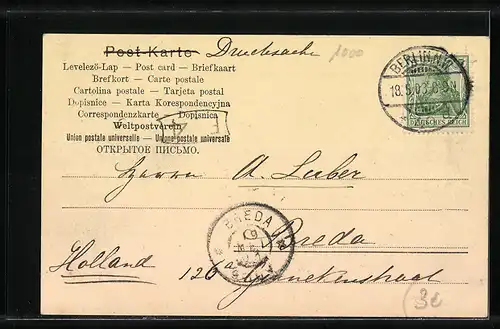 Post-Karte Drucksache 1000
Levelező-Lap — Post card — Briefkaart
Brefkort — Carte postale
Cartolina postale — Tarjeta postal
Dopisnice — Karta Korespondencyjna
Correspondenzkarte — Dopisnica
Weltpostverein
Union postale universelle — Unione postale universale
ОТКРЫТОЕ ПИСЬМО.
BERLIN N
18.5.03
DEUTSCHES REICH
Herrn A. Luber
BREDA
Breda
Holland 126 a Ginnekenstraat